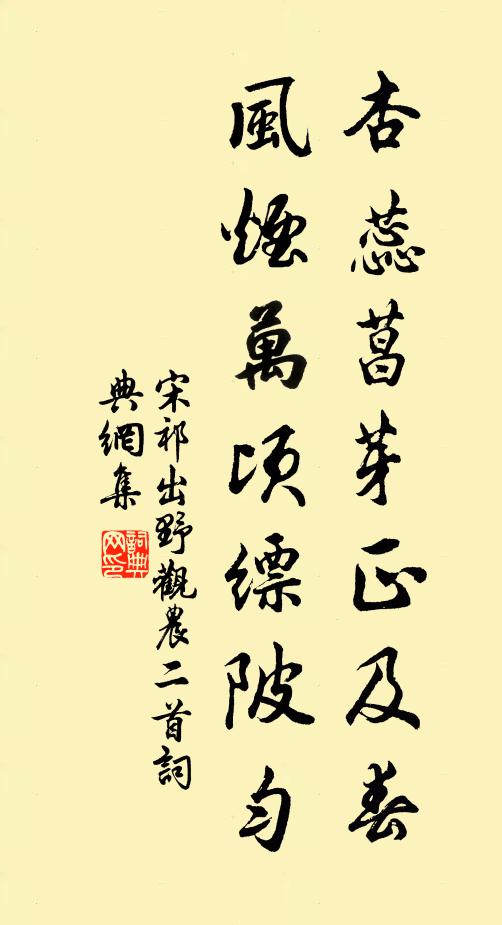 杏蕊菖芽正及春
風煙萬頃縹陂勻
宋祁出野觀農二首詞
典網集
詞典
网印